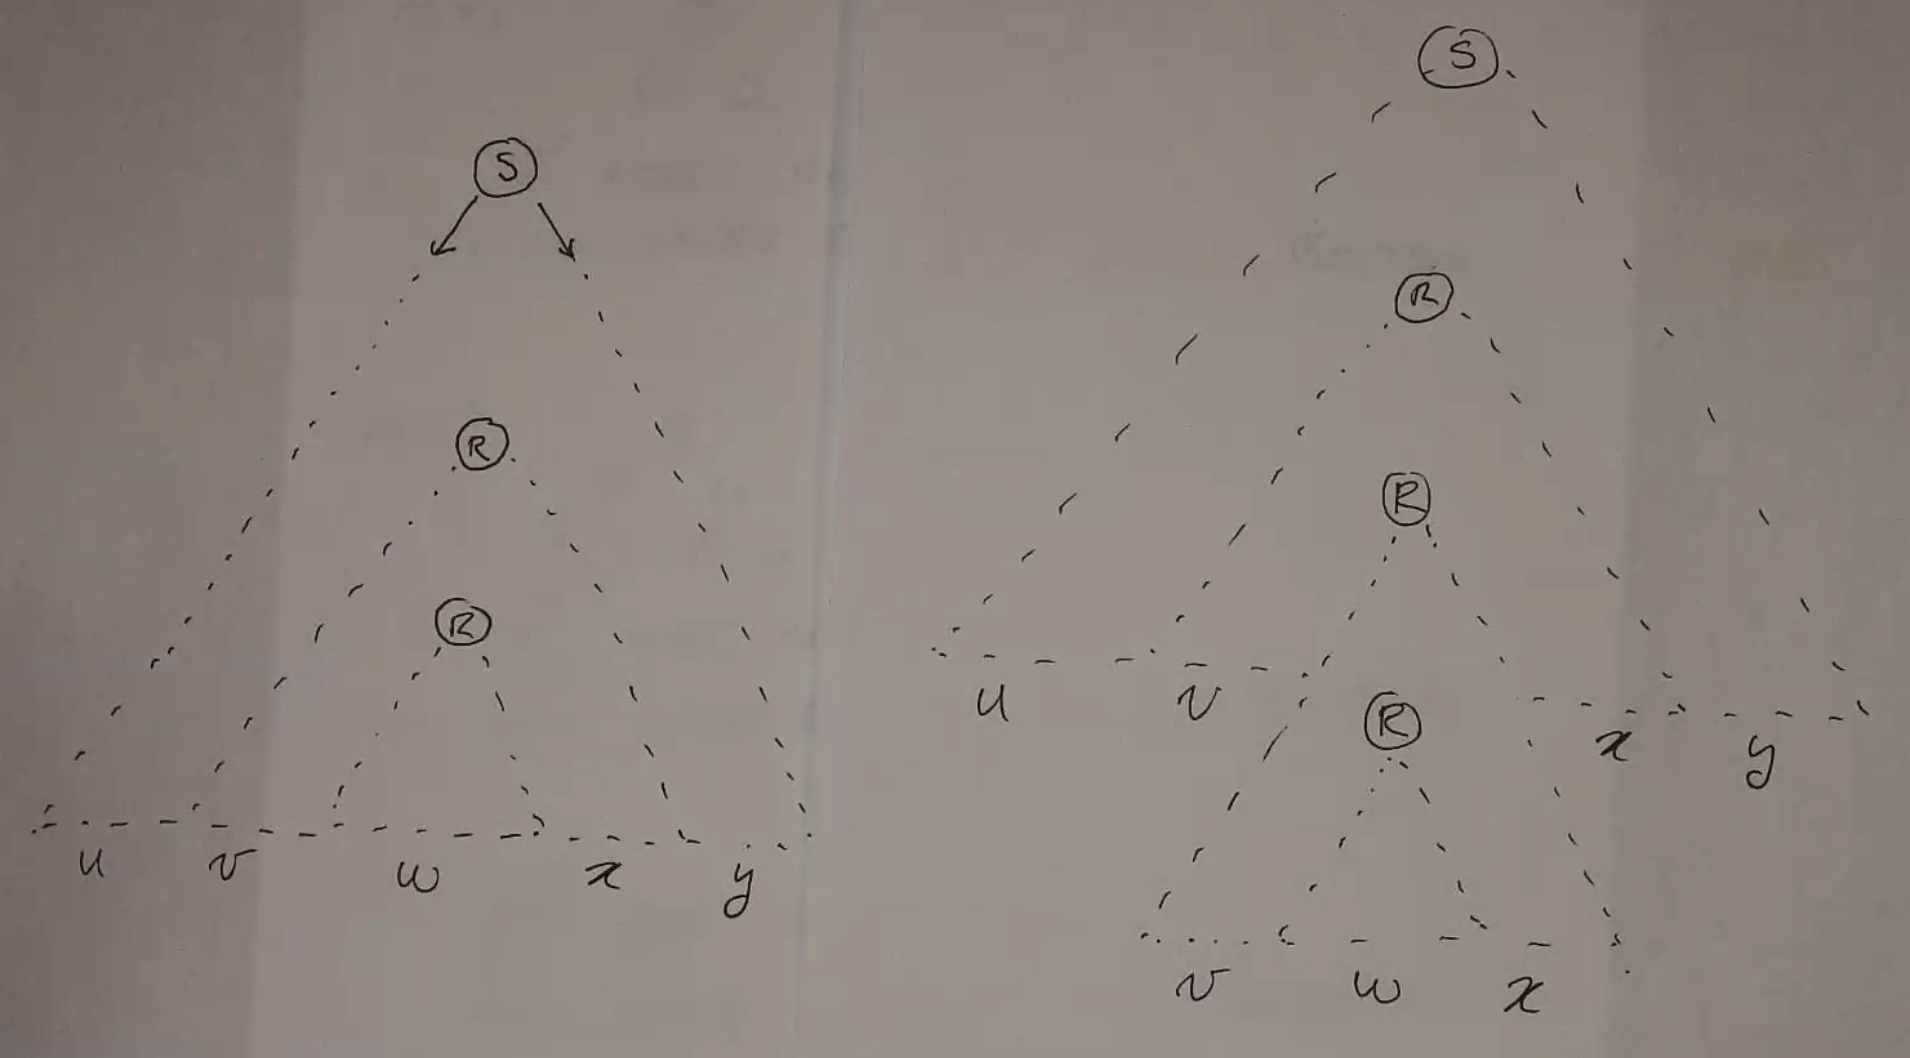 S
R
R
u v w x y
S
R
R
u v x y
R
v w x